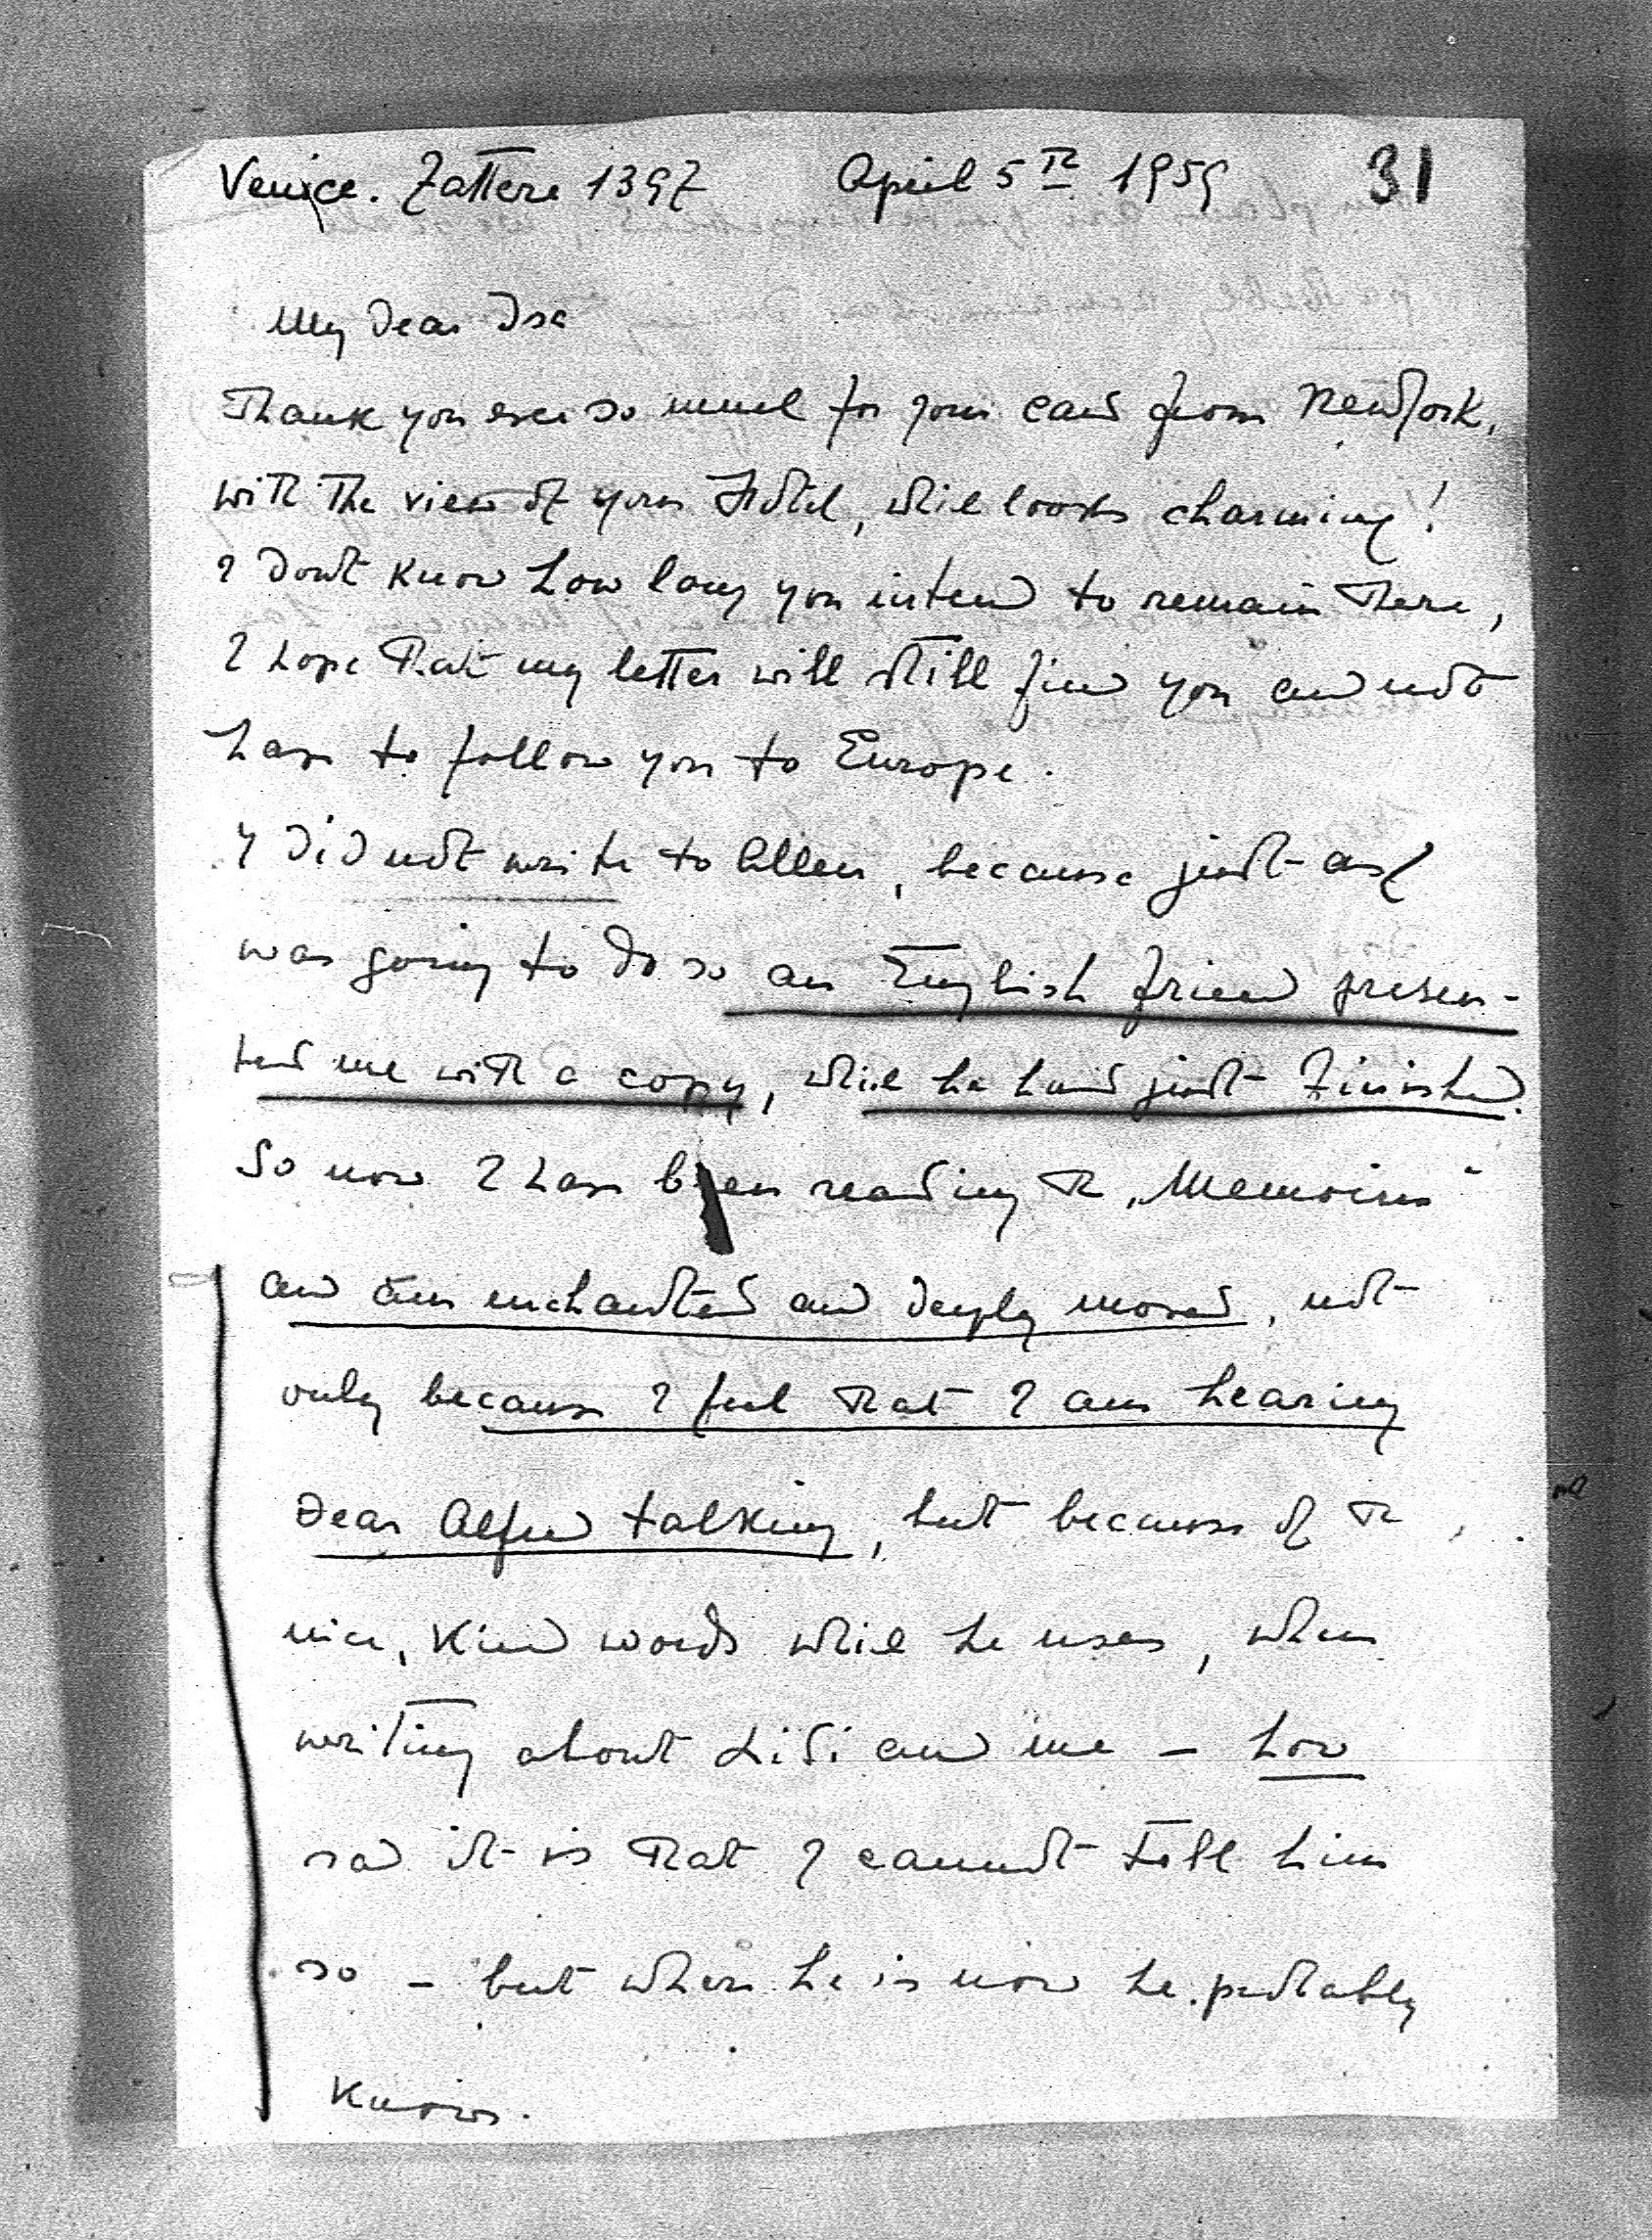 Venice. Zattere 1397 April 5th 1959 31
My dear Isa
Thank you ever so much for your card from New York,
with the view of your Hotel, which looks charming!
I don't know how long you intend to remain there,
I hope that my letter will still find you and not
have to follow you to Europe.
I did not write to Allen, because just as I
was going to do so an English friend presen-
ted me with a copy, which he had just finished.
So now I have been reading the "Memoirs"
and am enchanted and deeply moved, not
only because I feel that I am hearing
dear Alfred talking, but because of the
nice, kind words which he uses, when
writing about Lili and me – how
sad it is that I cannot tell him
so – but where he is now he probably
knows.